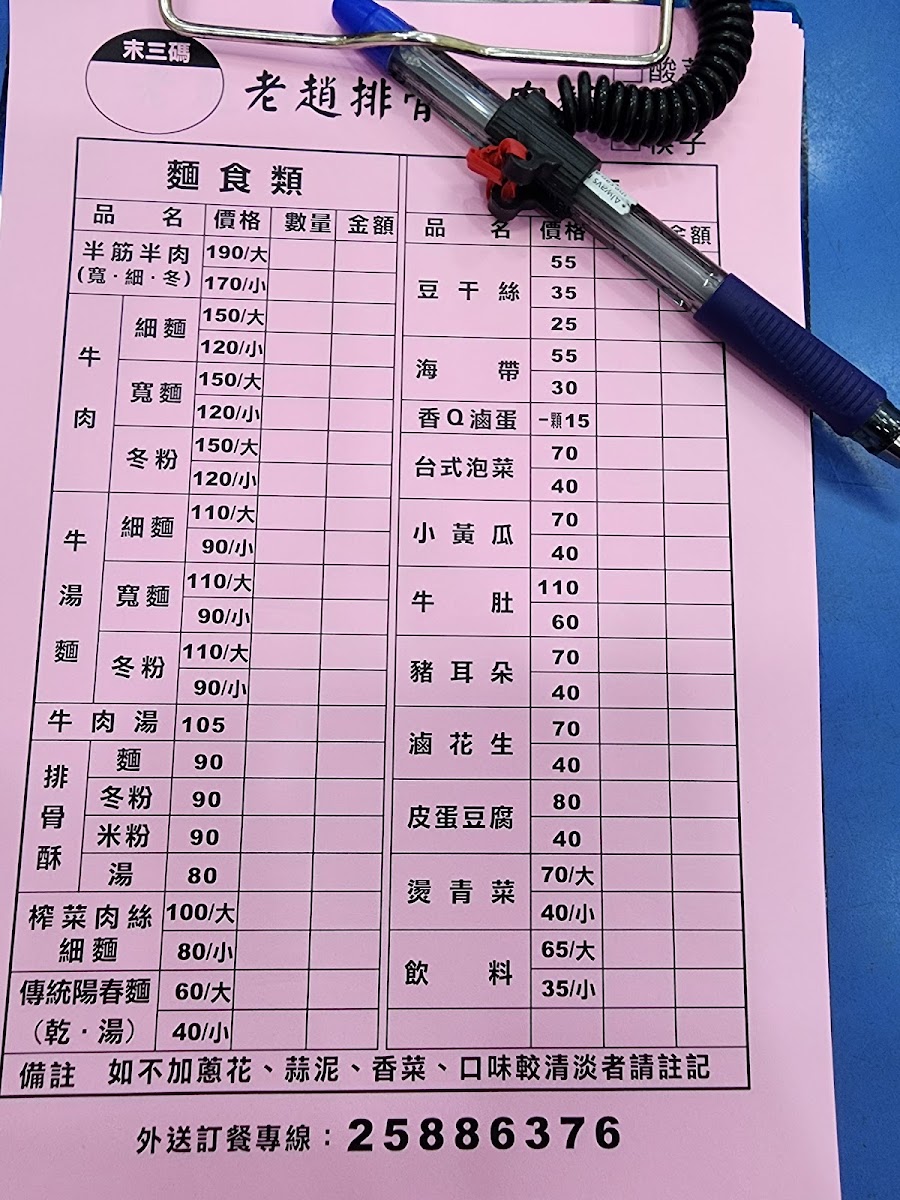 末三碼
老趙排骨
酸
筷子
麵食類
品名 價格 數量 金額
半筋半肉 190/大
(寬·細·冬) 170/小
牛肉 細麵 150/大
120/小
寬麵 150/大
120/小
冬粉 150/大
120/小
牛湯麵 細麵 110/大
90/小
寬麵 110/大
90/小
冬粉 110/大
90/小
牛肉湯 105
排骨酥 麵 90
冬粉 90
米粉 90
湯 80
榨菜肉絲 100/大
細麵 80/小
傳統陽春麵 60/大
(乾·湯) 40/小
品名 價格 金額
豆干絲 55
35
25
海帶 55
30
香Q滷蛋 一顆15
台式泡菜 70
40
小黃瓜 70
40
牛肚 110
60
豬耳朵 70
40
滷花生 70
40
皮蛋豆腐 80
40
燙青菜 70/大
40/小
飲料 65/大
35/小
備註 如不加蔥花、蒜泥、香菜、口味較清淡者請註記
外送訂餐專線：25886376
Always